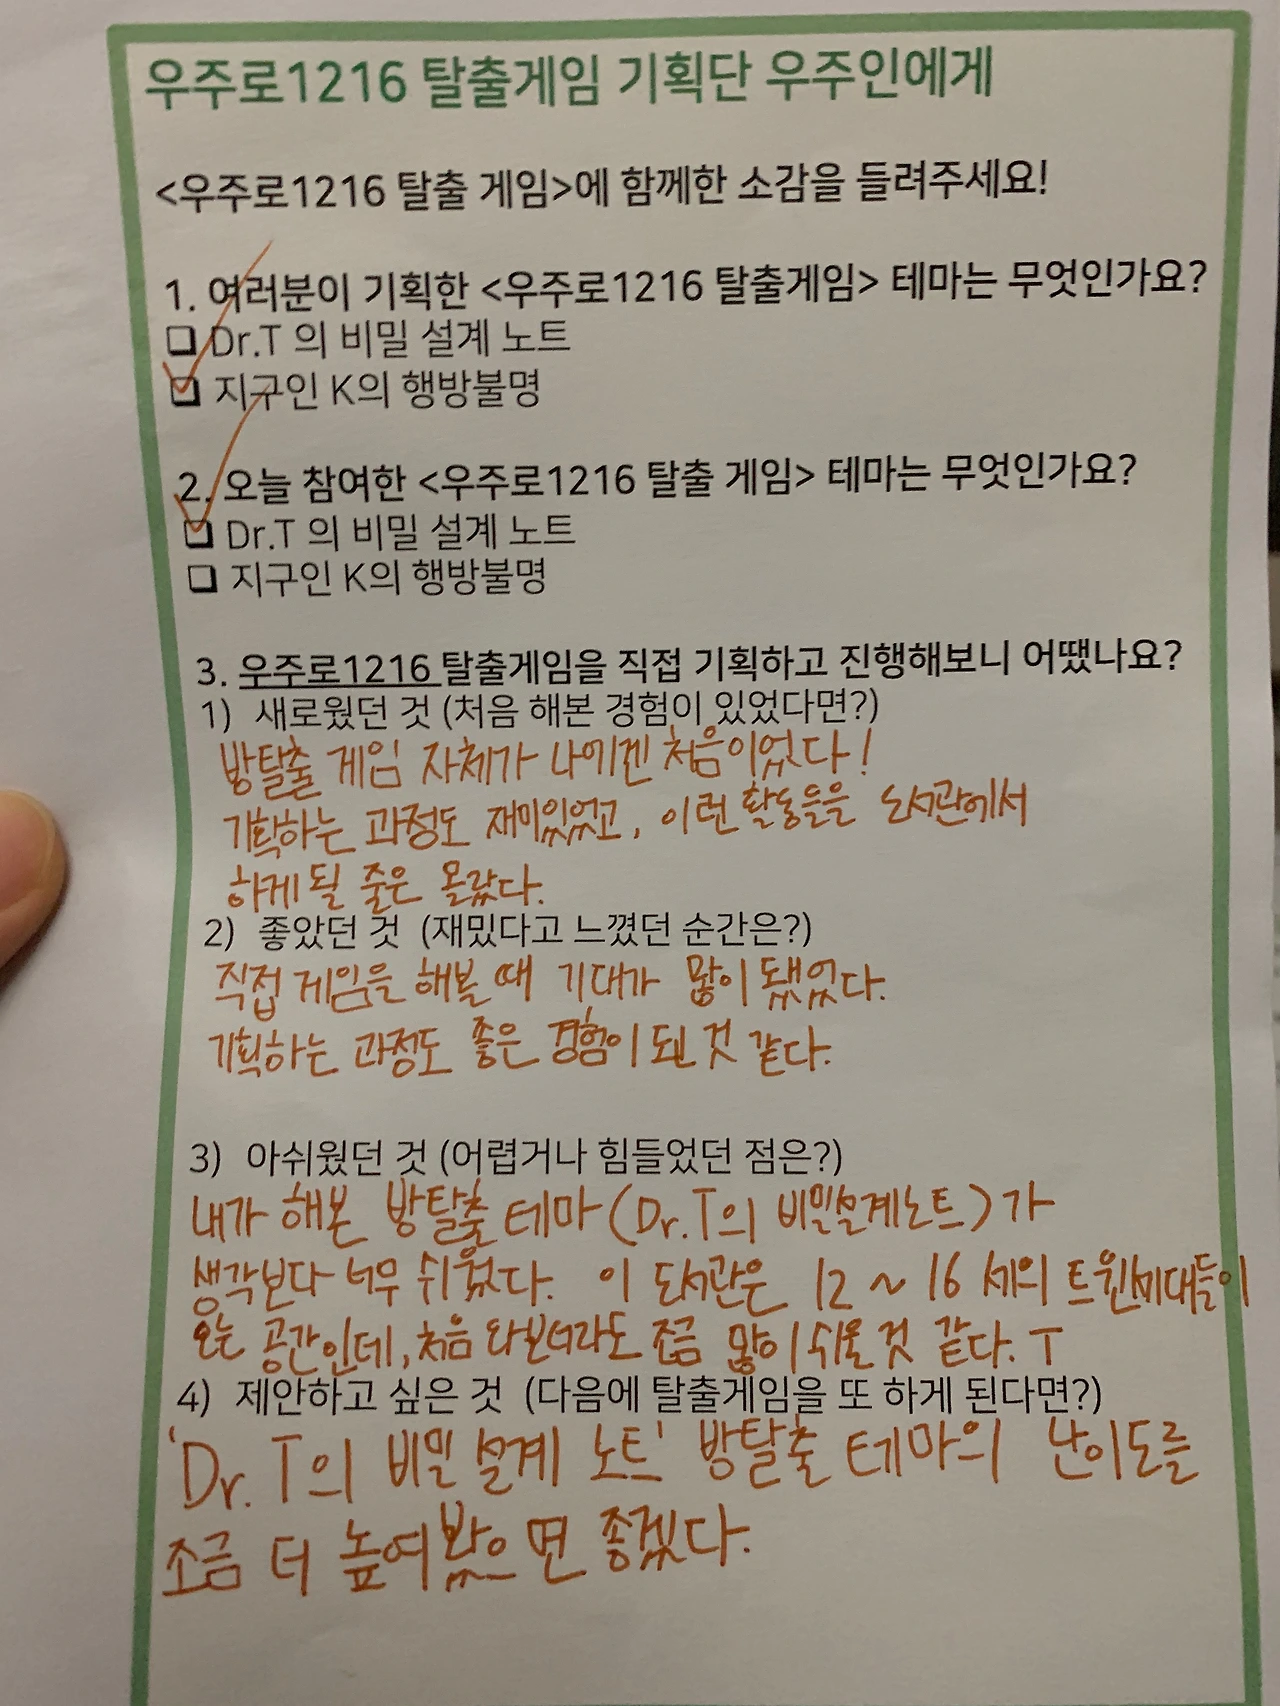 우주로1216 탈출게임 기획단 우주인에게
<우주로1216 탈출 게임>에 함께한 소감을 들려주세요!
1. 여러분이 기획한 <우주로1216 탈출게임> 테마는 무엇인가요?
❏ Dr.T 의 비밀 설계 노트
❏ 지구인 K의 행방불명
2. 오늘 참여한 <우주로1216 탈출 게임> 테마는 무엇인가요?
❏ Dr.T 의 비밀 설계 노트
❏ 지구인 K의 행방불명
3. 우주로1216 탈출게임을 직접 기획하고 진행해보니 어땠나요?
1) 새로웠던 것 (처음 해본 경험이 있었다면?)
방탈출 게임 자체가 나에겐 처음이었다!
기획하는 과정도 재미있었고, 이런 활동들을 도서관에서
하게 될 줄은 몰랐다.
2) 좋았던 것 (재밌다고 느꼈던 순간은?)
직접 게임을 해볼 때 기대가 많이 됐었다.
기획하는 과정도 좋은 경험이 된 것 같다.
3) 아쉬웠던 것 (어렵거나 힘들었던 점은?)
내가 해본 방탈출 테마(Dr.T의 비밀설계노트)가
생각보다 너무 쉬웠다. 이 도서관은 12~16세의 트윈세대들이
오는 공간인데, 처음 와보더라도 조금 많이 쉬울 것 같다. T
4) 제안하고 싶은 것 (다음에 탈출게임을 또 하게 된다면?)
'Dr. T의 비밀 설계 노트' 방탈출 테마의 난이도를
조금 더 높여봤으면 좋겠다.